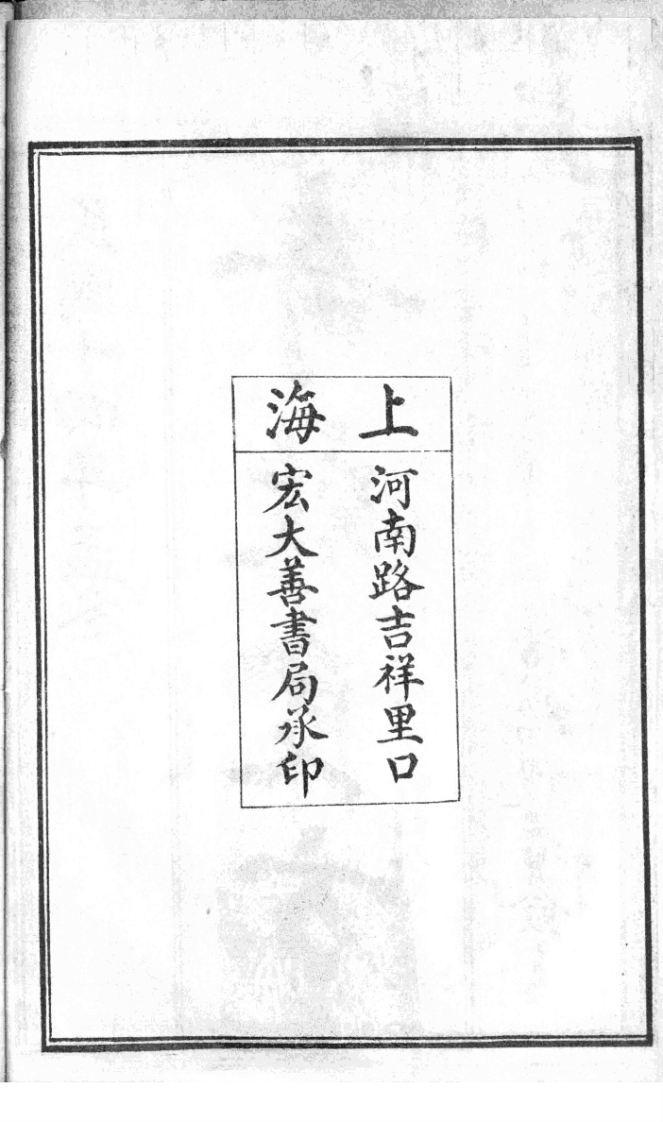 上海
河南路吉祥里口
宏大善書局承印